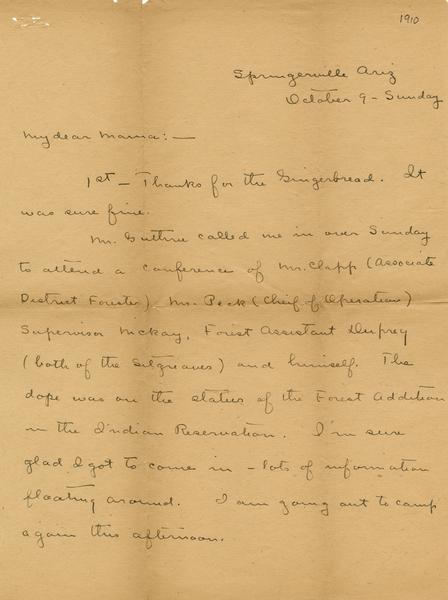 1910
Springerville Ariz
October 9 - Sunday
My dear Mama: —
1st — Thanks for the Gingerbread. It
was sure fine.
Mr. Guthrie called me in over Sunday
to attend a conference of Mr. Clapp (Associate
District Forester), Mr. Peck (Chief of Operation)
Supervisor McKay, Forest Assistant
(both of the Sitgreaves) and himself. The
dope was on the status of the Forest Addition
in the Indian Reservation. I'm sure
glad I got to come in - lots of information
floating around. I am going out to camp
again this afternoon.